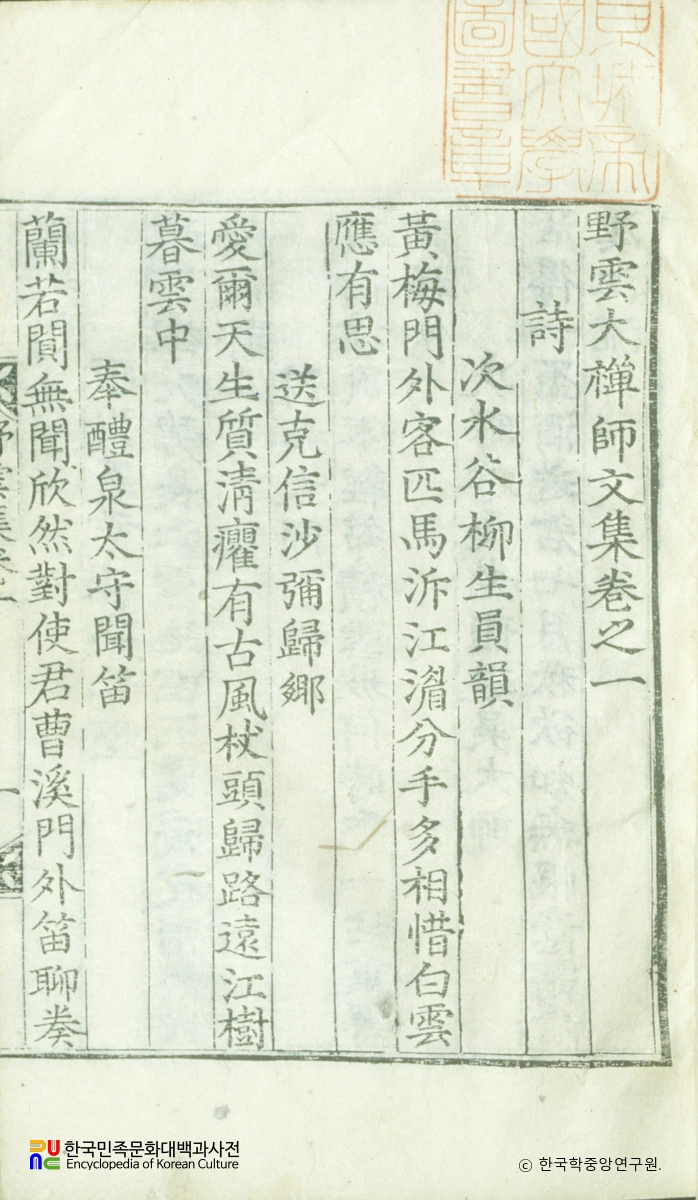 野雲大禪師文集卷之一
詩
次水谷柳生員韻
黃梅門外客匹馬泝江湄分手多相惜白雲
應有思
送克信沙彌歸鄉
愛爾天生質淸癯有古風杖頭歸路遠江樹
暮雲中
奉醴泉太守聞笛
蘭若閴無聞欣然對使君曹溪門外笛聊奏
一
한국민족문화대백과사전
Encyclopedia of Korean Culture
© 한국학중앙연구원.